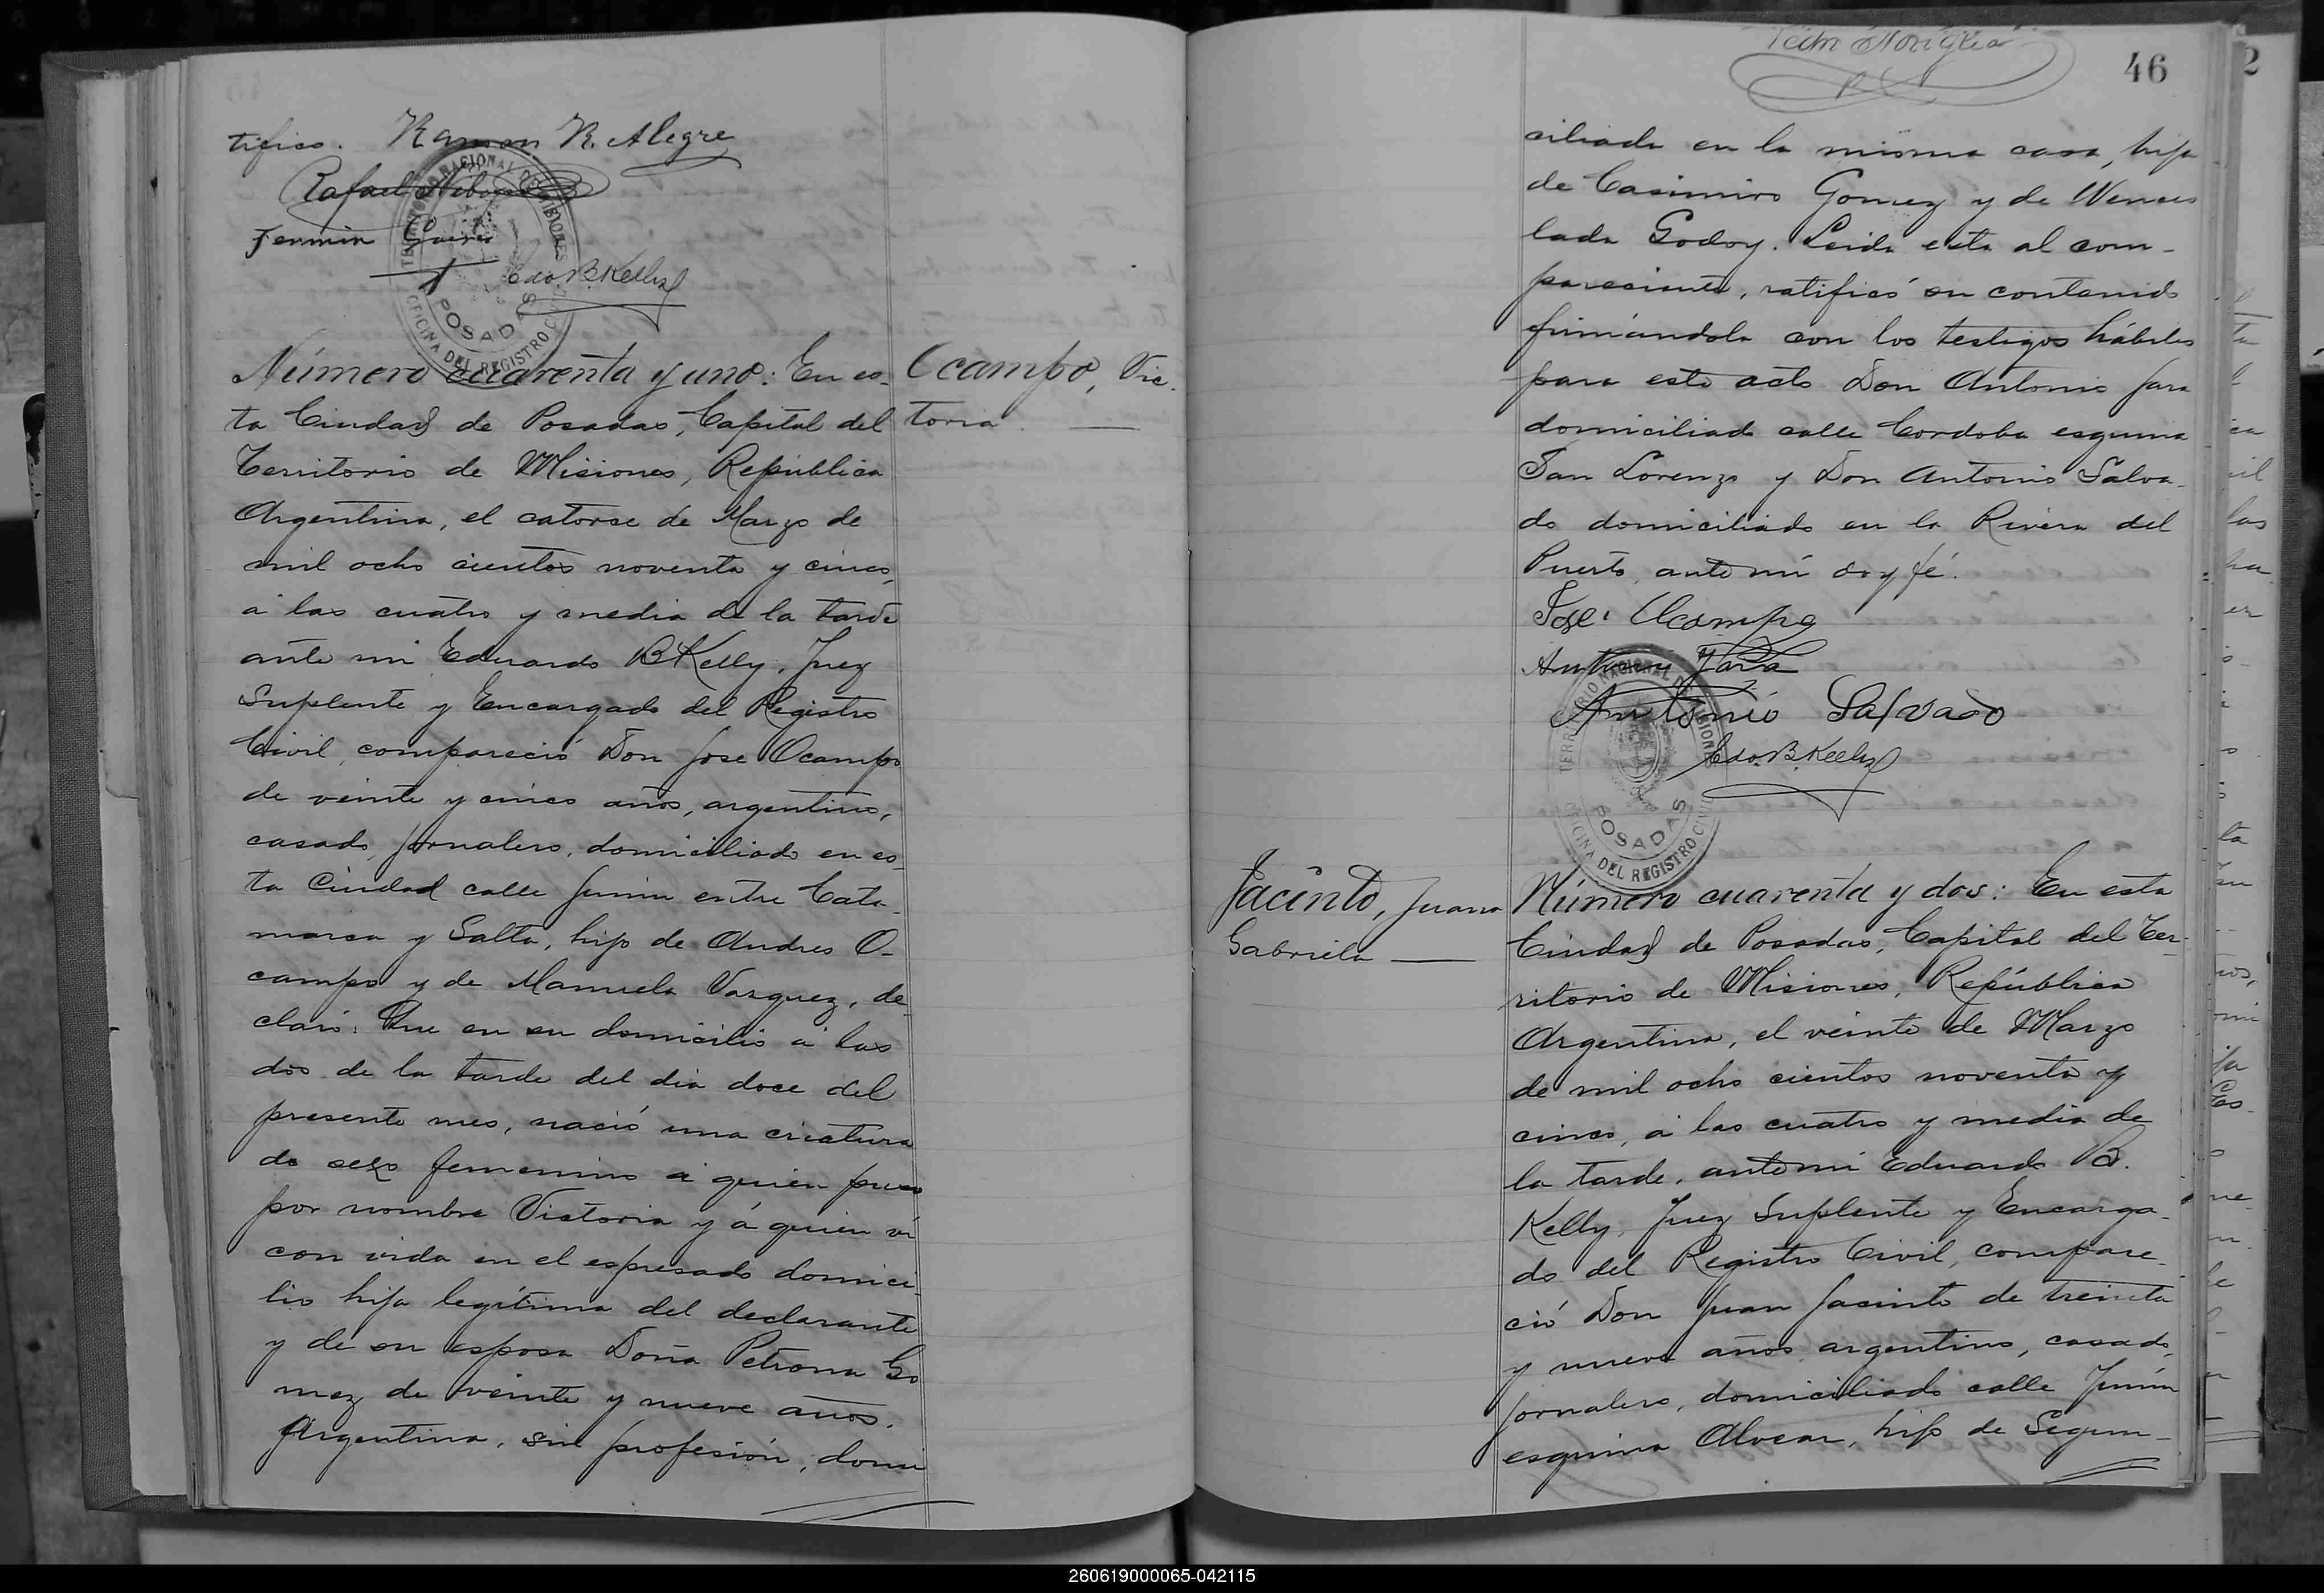 tifico. Ramon R. Alegre
Rafael
Fermin
Edo. B. Kelly
TERRITORIO NACIONAL DE MISIONES
POSADAS
OFICINA DEL REGISTRO CIVIL
Número cuarenta y uno: En es-
Ocampo, Vic-
toria.
ta Ciudad de Posadas, Capital del
Territorio de Misiones, República
Argentina, el catorce de Marzo de
mil ocho cientos noventa y cinco,
á las cuatro y media de la tarde
ante mi Eduardo B Kelly, Juez
Suplente y Encargado del Registro
Civil, compareció Don Jose Ocampo
de veinte y cinco años, argentino,
casado, jornalero, domiciliado en es-
ta Ciudad calle Junin entre Cata-
marca y Salta, hijo de Andres O-
campo y de Manuela Vasquez, de-
claró: Que en su domicilio á las
dos de la tarde del dia doce del
presente mes, nació una criatura
de sexo femenino á quien puso
por nombre Victoria y á quien ví
con vida en el espresado domici-
lio hija legítima del declarante
y de su esposa Doña Petrona Go
mez de veinte y nueve años,
Argentina, sin profesión, domi
46
ciliada en la misma casa, hija
de Casimiro Gomez y de Wences
lada Godoy. Leida esta al com-
pareciente, ratificó su contenido
firmándola con los testigos hábiles
para este acto Don Antonio Jara
domiciliado calle Cordoba esquina
San Lorenzo y Don Antonio Salva-
do domiciliado en la Rivera del
Puerto, ante mí doy fé.
Jose Ocampo
Antonio Jara
Antonio Salvado
Edo. B. Kelly
TERRITORIO NACIONAL DE MISIONES
POSADAS
OFICINA DEL REGISTRO CIVIL
Jacinto, Juana
Gabriela
Número cuarenta y dos: En esta
Ciudad de Posadas, Capital del Ter-
ritorio de Misiones, República
Argentina, el veinte de Marzo
de mil ocho cientos noventa y
cinco, á las cuatro y media de
la tarde, ante mi Eduardo B.
Kelly, Juez Suplente y Encarga-
do del Registro Civil, compare-
ció Don Juan Jacinto de treinta
y nueve años argentino, casado,
jornalero, domiciliado calle Junin
esquina Alvear, hijo de Segun-
260619000065-042115